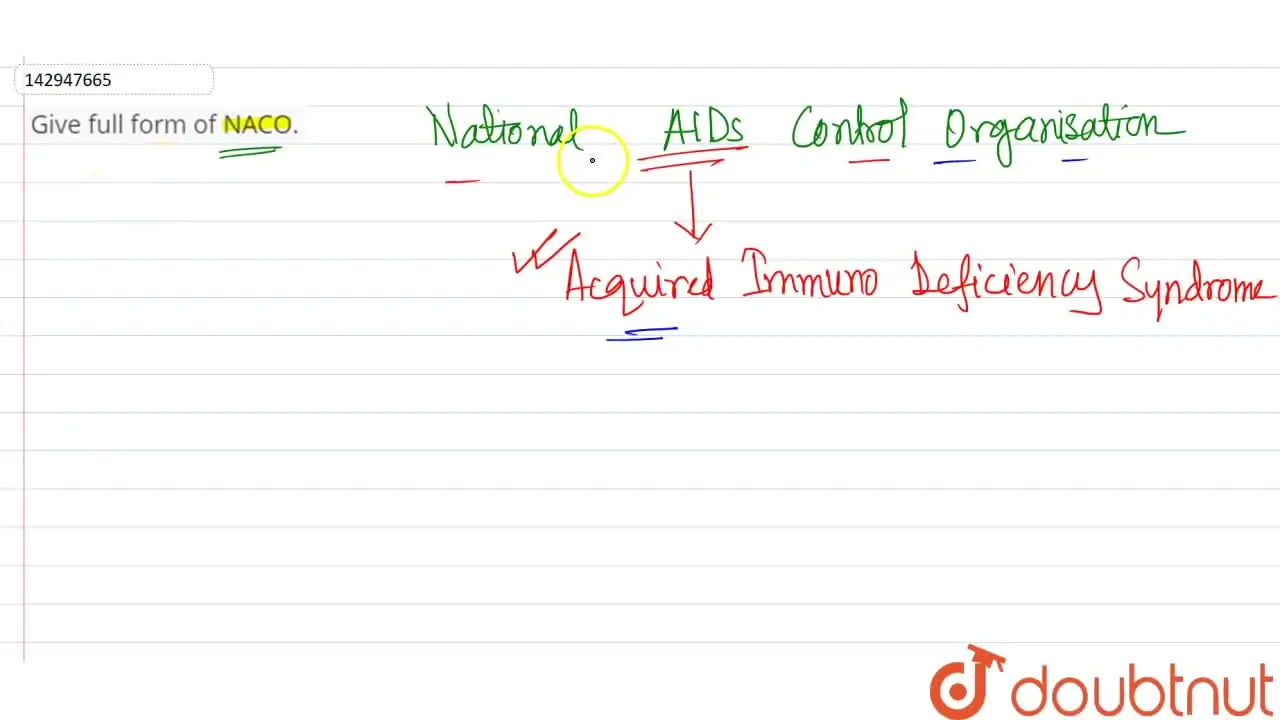 142947665
Give full form of NACO. National AIDs Control Organisation
Acquired Immuno Deficiency Syndrome
doubtnut